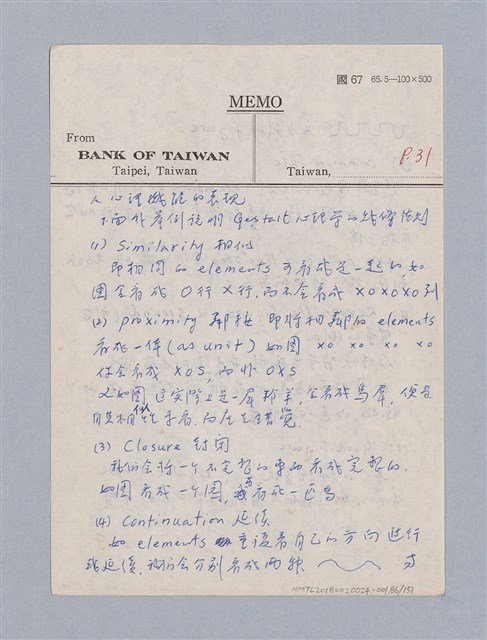 國 67 65.5—100×500
MEMO
From
BANK OF TAIWAN
Taipei, Taiwan
Taiwan,
P.31
人心理機能的表現
下面我舉例說明 Gestalt 心理学的組律法則
(1) Similarity 相似
即相同的 elements 可看成是一起的.如
圖会看成 O行 X行,而不会看成 XOXOXO列
(2) proximity 鄰接 即將相鄰的 elements
看成一体 (as unit) 如圖 xo xo xo xo
你会看成 XOS, 而非 OXS
又如圖,這实際上是一羣羚羊,会看成馬羣,便是
因其相似性來看,而產生錯覚
(3) Closure 封閉
我们会將一个不完整的東西看成完整的.
如圖看成一个圓,或看成一匹馬
(4) Continuation 延續
如 elements 是沿著自己的方向進行
或延續,我们会分別看成兩條
NMTL20180020024-001,86/151